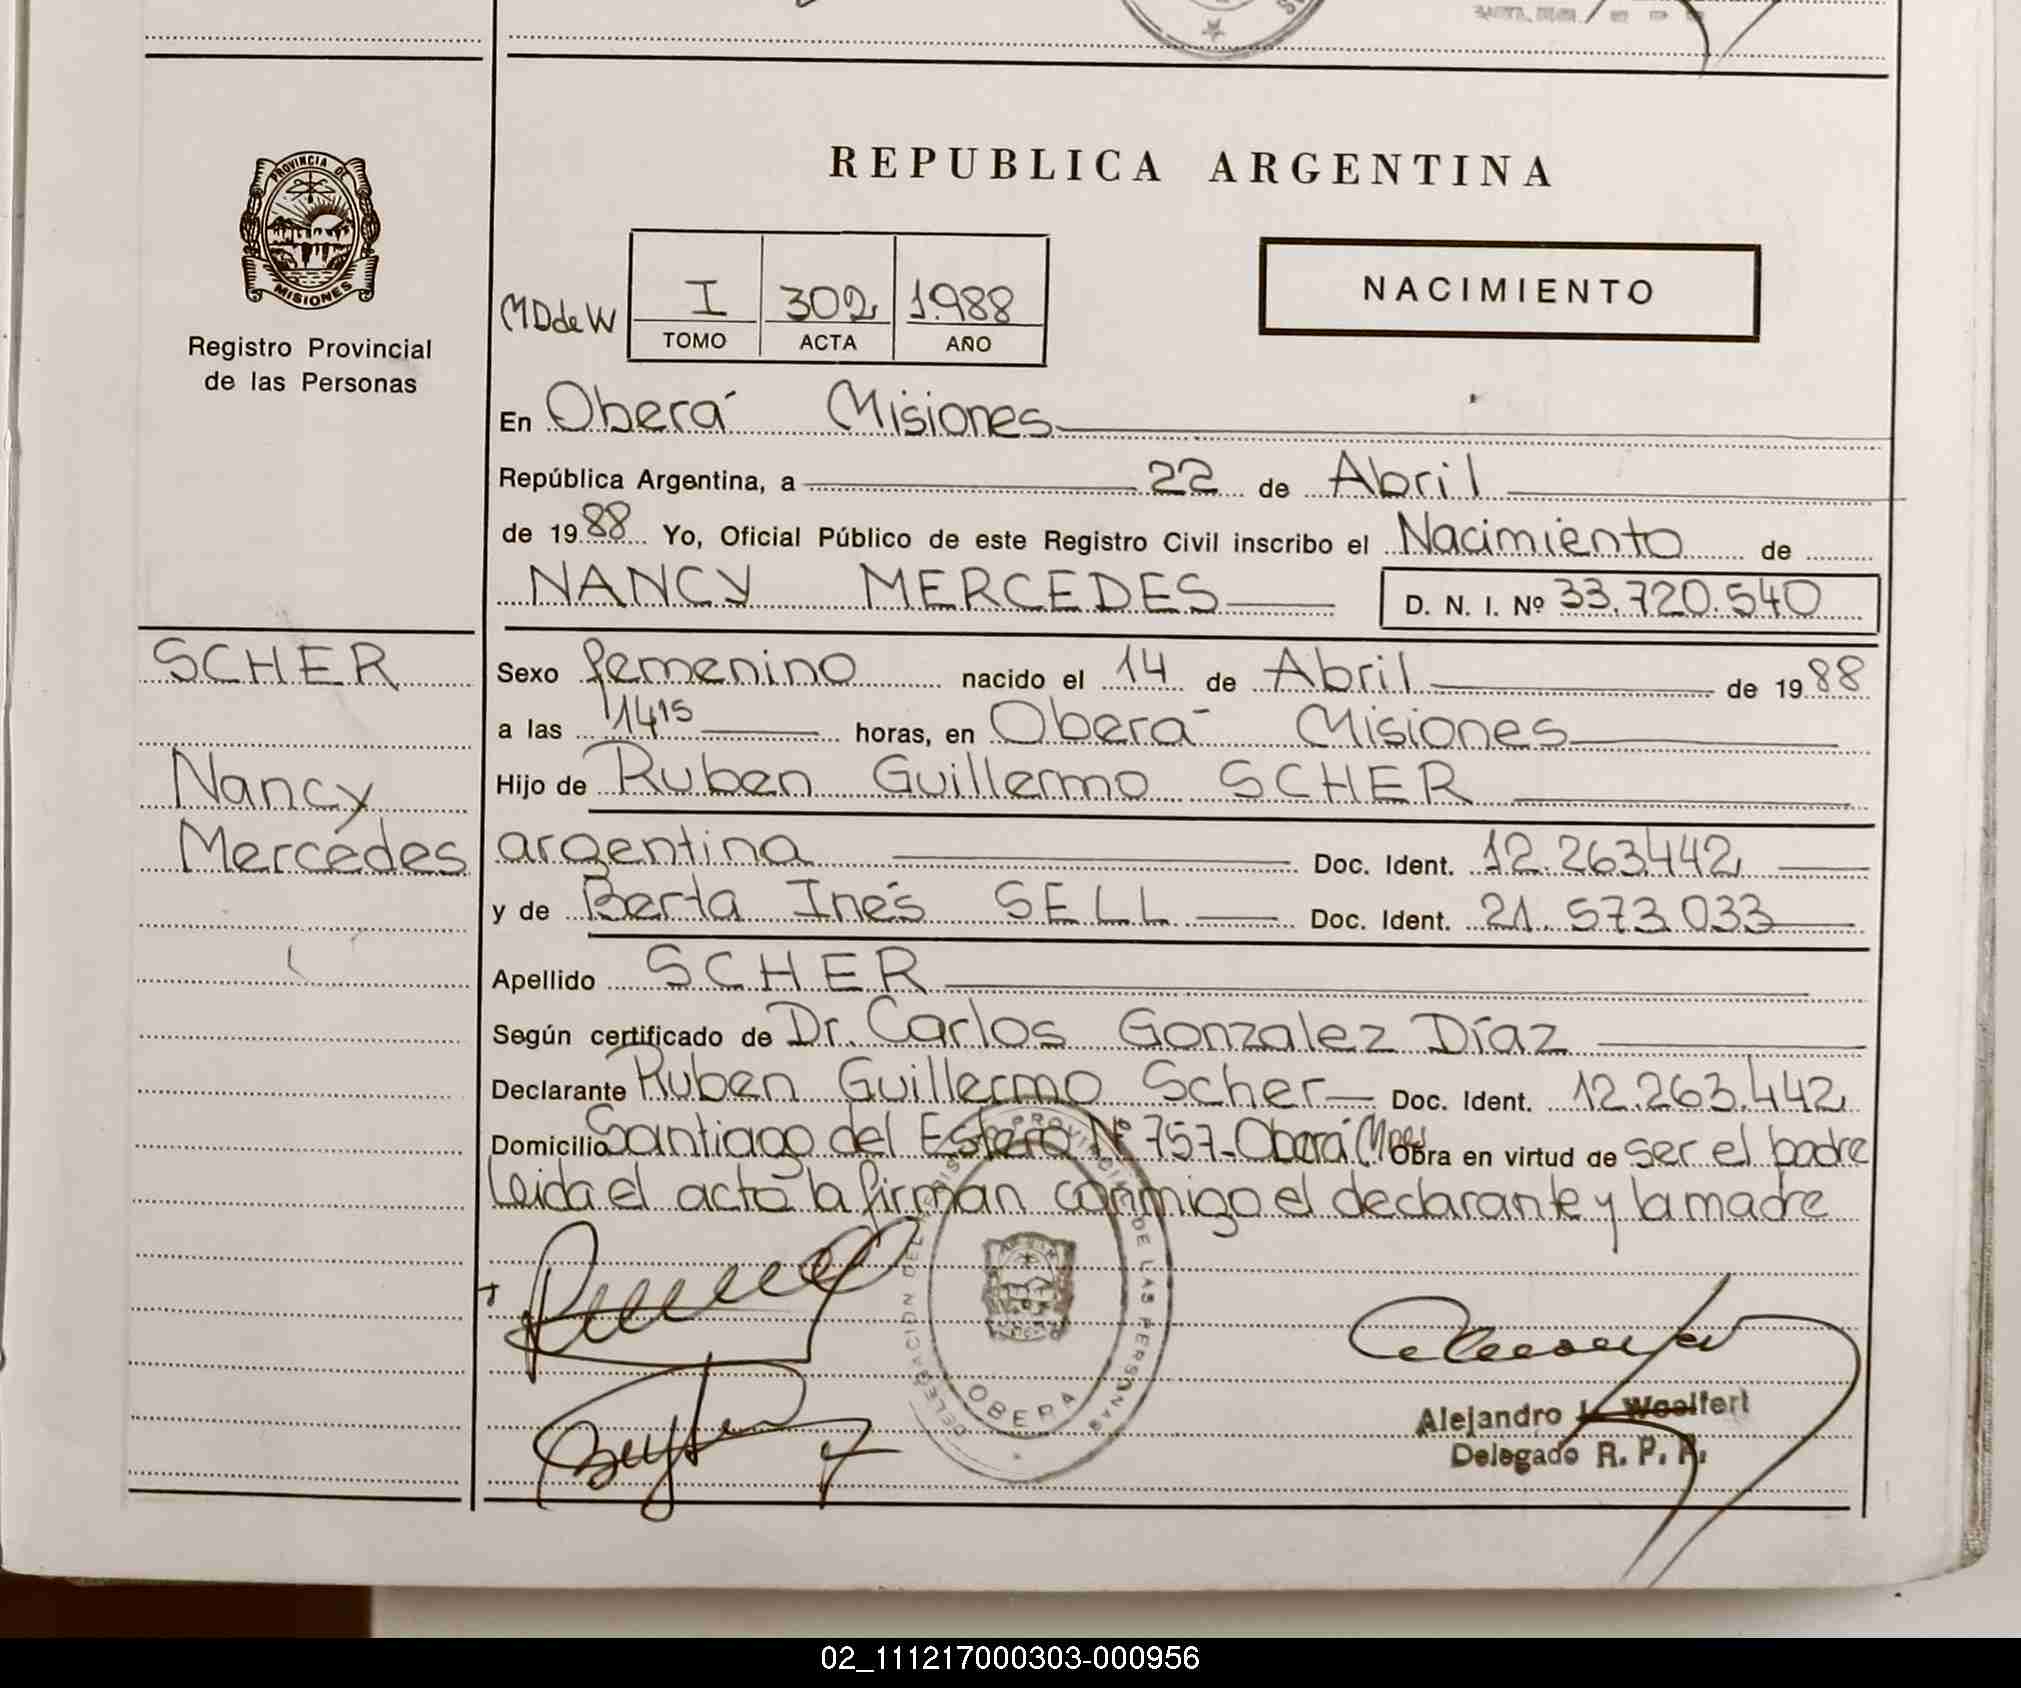 REPUBLICA ARGENTINA
PROVINCIA DE
MISIONES
Registro Provincial
de las Personas
MDdeW
I 302 1988
TOMO ACTA AÑO
NACIMIENTO
En Oberá Misiones
República Argentina, a 22 de Abril
de 1988 Yo, Oficial Público de este Registro Civil inscribo el Nacimiento de
NANCY MERCEDES D. N. I. Nº 33.720.540
SCHER
Nancy
Mercedes
Sexo femenino nacido el 14 de Abril de 1988
a las 14 15 horas, en Oberá Misiones
Hijo de Ruben Guillermo SCHER
argentina Doc. Ident. 12.263.442
y de Berta Inés SELL Doc. Ident. 21.573.033
Apellido SCHER
Según certificado de Dr. Carlos Gonzalez Díaz
Declarante Ruben Guillermo Scher Doc. Ident. 12.263.442
Domicilio Santiago del Estero Nº 757-Oberá Obra en virtud de ser el padre
Leida el acta la firman conmigo el declarante y la madre
DELEGACION DEL REGISTRO PROVINCIAL DE LAS PERSONAS
OBERA
Alejandro L. Woolfert
Delegado R. P. P.
02_111217000303-000956